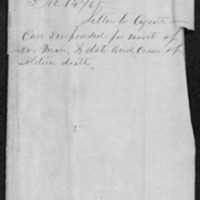 Dec 14/65
Letter to Agent
Case Suspended for want of
ev. Mar. & date and Cause of
soldier death